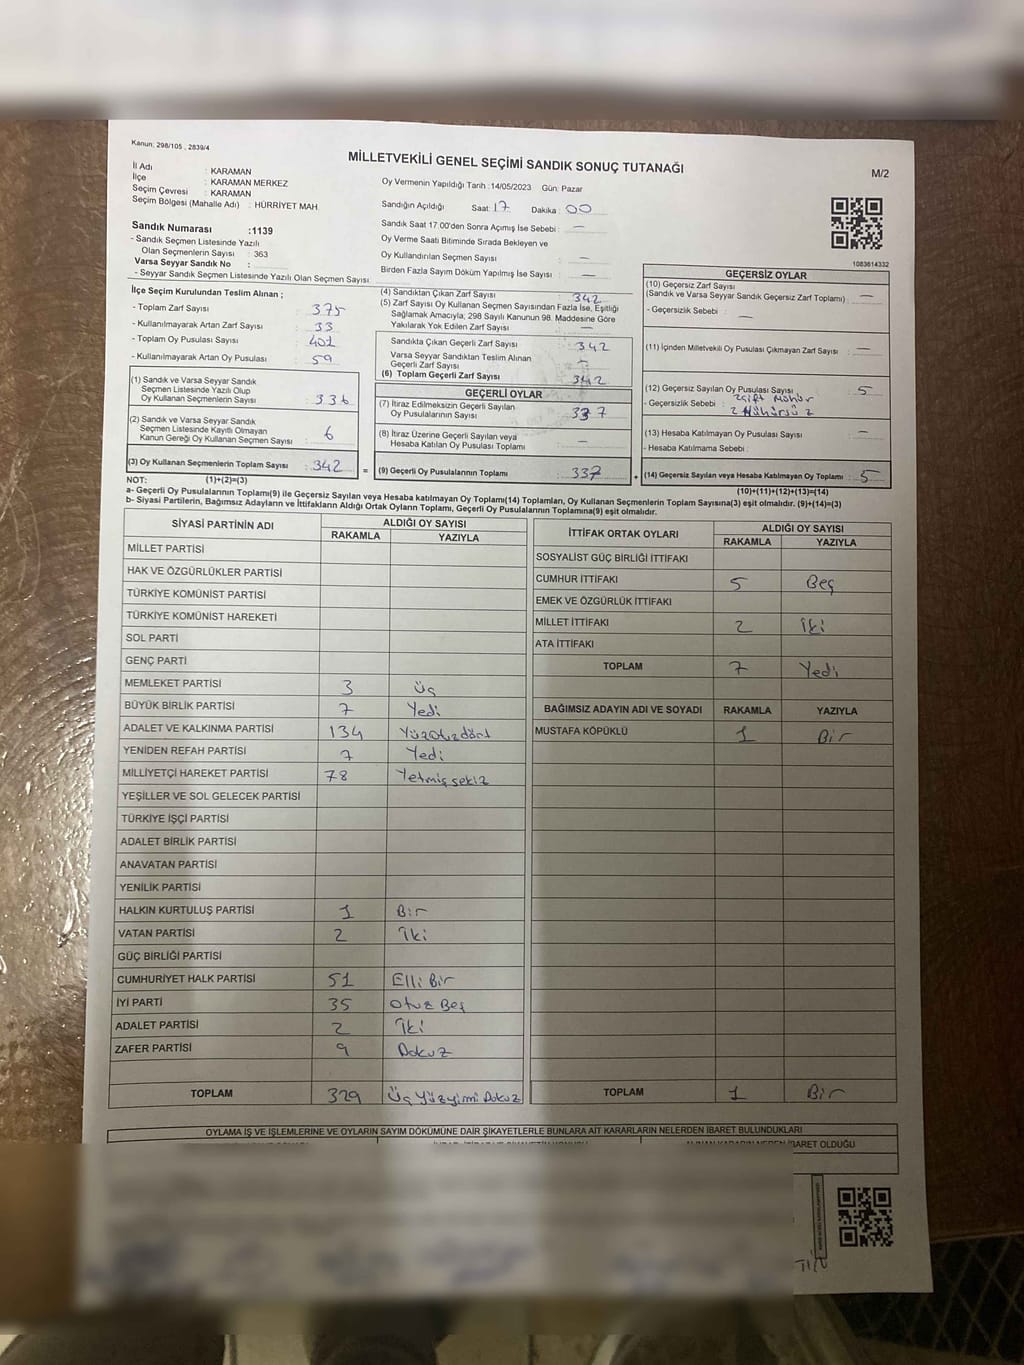 Kanun: 298/105 , 2839/4
MİLLETVEKİLİ GENEL SEÇİMİ SANDIK SONUÇ TUTANAĞI
M/2
İl Adı : KARAMAN
İlçe : KARAMAN MERKEZ
Seçim Çevresi : KARAMAN
Seçim Bölgesi (Mahalle Adı) : HÜRRİYET MAH.
Oy Vermenin Yapıldığı Tarih :14/05/2023 Gün: Pazar
Sandığın Açıldığı Saat: 17 Dakika : 00
Sandık Saat 17:00'den Sonra Açımış İse Sebebi : —
Oy Verme Saati Bitiminde Sırada Bekleyen ve
Oy Kullandırılan Seçmen Sayısı : —
Birden Fazla Sayım Döküm Yapılmış İse Sayısı : —
Sandık Numarası :1139
- Sandık Seçmen Listesinde Yazılı
Olan Seçmenlerin Sayısı : 363
Varsa Seyyar Sandık No :
- Seyyar Sandık Seçmen Listesinde Yazılı Olan Seçmen Sayısı :
1083614332
İlçe Seçim Kurulundan Teslim Alınan ;
- Toplam Zarf Sayısı : 375
- Kullanılmayarak Artan Zarf Sayısı : 33
- Toplam Oy Pusulası Sayısı : 401
- Kullanılmayarak Artan Oy Pusulası : 59
(1) Sandık ve Varsa Seyyar Sandık
Seçmen Listesinde Yazılı Olup
Oy Kullanan Seçmenlerin Sayısı : 336
(2) Sandık ve Varsa Seyyar Sandık
Seçmen Listesinde Kayıtlı Olmayan
Kanun Gereği Oy Kullanan Seçmen Sayısı : 6
(3) Oy Kullanan Seçmenlerin Toplam Sayısı : 342 =
(4) Sandıktan Çıkan Zarf Sayısı : 342
(5) Zarf Sayısı Oy Kullanan Seçmen Sayısından Fazla İse, Eşitliği
Sağlamak Amacıyla; 298 Sayılı Kanunun 98. Maddesine Göre
Yakılarak Yok Edilen Zarf Sayısı : —
Sandıkta Çıkan Geçerli Zarf Sayısı : 342
Varsa Seyyar Sandıktan Teslim Alınan
Geçerli Zarf Sayısı : —
(6) Toplam Geçerli Zarf Sayısı : 342
GEÇERLİ OYLAR
(7) İtiraz Edilmeksizin Geçerli Sayılan
Oy Pusulalarının Sayısı : 337
(8) İtiraz Üzerine Geçerli Sayılan veya
Hesaba Katılan Oy Pusulası Toplamı : —
(9) Geçerli Oy Pusulalarının Toplamı : 337 +
GEÇERSİZ OYLAR
(10) Geçersiz Zarf Sayısı
(Sandık ve Varsa Seyyar Sandık Geçersiz Zarf Toplamı) : —
- Geçersizlik Sebebi : —
(11) İçinden Milletvekili Oy Pusulası Çıkmayan Zarf Sayısı : —
(12) Geçersiz Sayılan Oy Pusulası Sayısı : 5
- Geçersizlik Sebebi : Çift Mühür
2 Mühürsüz
(13) Hesaba Katılmayan Oy Pusulası Sayısı : —
- Hesaba Katılmama Sebebi :
(14) Geçersiz Sayılan veya Hesaba Katılmayan Oy Toplamı : 5
NOT: (1)+(2)=(3)
(10)+(11)+(12)+(13)=(14)
a- Geçerli Oy Pusulalarının Toplamı(9) ile Geçersiz Sayılan veya Hesaba katılmayan Oy Toplamı(14) Toplamları, Oy Kullanan Seçmenlerin Toplam Sayısına(3) eşit olmalıdır. (9)+(14)=(3)
b- Siyasi Partilerin, Bağımsız Adayların ve İttifakların Aldığı Ortak Oyların Toplamı, Geçerli Oy Pusulalarının Toplamına(9) eşit olmalıdır.
SİYASİ PARTİNİN ADI ALDIĞI OY SAYISI
RAKAMLA YAZIYLA
MİLLET PARTİSİ
HAK VE ÖZGÜRLÜKLER PARTİSİ
TÜRKİYE KOMÜNİST PARTİSİ
TÜRKİYE KOMÜNİST HAREKETİ
SOL PARTİ
GENÇ PARTİ
MEMLEKET PARTİSİ 3 Üç
BÜYÜK BİRLİK PARTİSİ 7 Yedi
ADALET VE KALKINMA PARTİSİ 134 Yüzotuzdört
YENİDEN REFAH PARTİSİ 7 Yedi
MİLLİYETÇİ HAREKET PARTİSİ 78 Yetmiş sekiz
YEŞİLLER VE SOL GELECEK PARTİSİ
TÜRKİYE İŞÇİ PARTİSİ
ADALET BİRLİK PARTİSİ
ANAVATAN PARTİSİ
YENİLİK PARTİSİ
HALKIN KURTULUŞ PARTİSİ 1 Bir
VATAN PARTİSİ 2 İki
GÜÇ BİRLİĞİ PARTİSİ
CUMHURİYET HALK PARTİSİ 51 Elli Bir
İYİ PARTİ 35 Otuz Beş
ADALET PARTİSİ 2 İki
ZAFER PARTİSİ 9 Dokuz
TOPLAM 329 Üç Yüzyirmi Dokuz
İTTİFAK ORTAK OYLARI ALDIĞI OY SAYISI
RAKAMLA YAZIYLA
SOSYALİST GÜÇ BİRLİĞİ İTTİFAKI
CUMHUR İTTİFAKI 5 Beş
EMEK VE ÖZGÜRLÜK İTTİFAKI
MİLLET İTTİFAKI 2 İki
ATA İTTİFAKI
TOPLAM 7 Yedi
BAĞIMSIZ ADAYIN ADI VE SOYADI RAKAMLA YAZIYLA
MUSTAFA KÖPÜKLÜ 1 Bir
TOPLAM 1 Bir
OYLAMA İŞ VE İŞLEMLERİNE VE OYLARIN SAYIM DÖKÜMÜNE DAİR ŞİKAYETLERLE BUNLARA AİT KARARLARIN NELERDEN İBARET BULUNDUKLARI
İBARET OLDUĞU